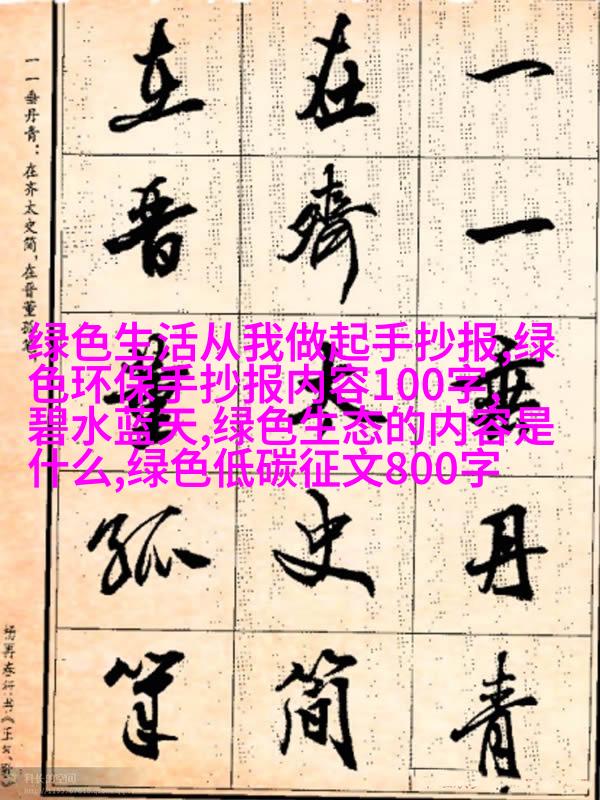 一一垂丹青
在齐太史简
在晋董狐笔
一一垂丹青：在齐太史简，在晋董狐笔
绿色生活从我做起手抄报,绿
色环保手抄报内容100字,
碧水蓝天,绿色生态的内容是
什么,绿色低碳征文800字
科长的空间